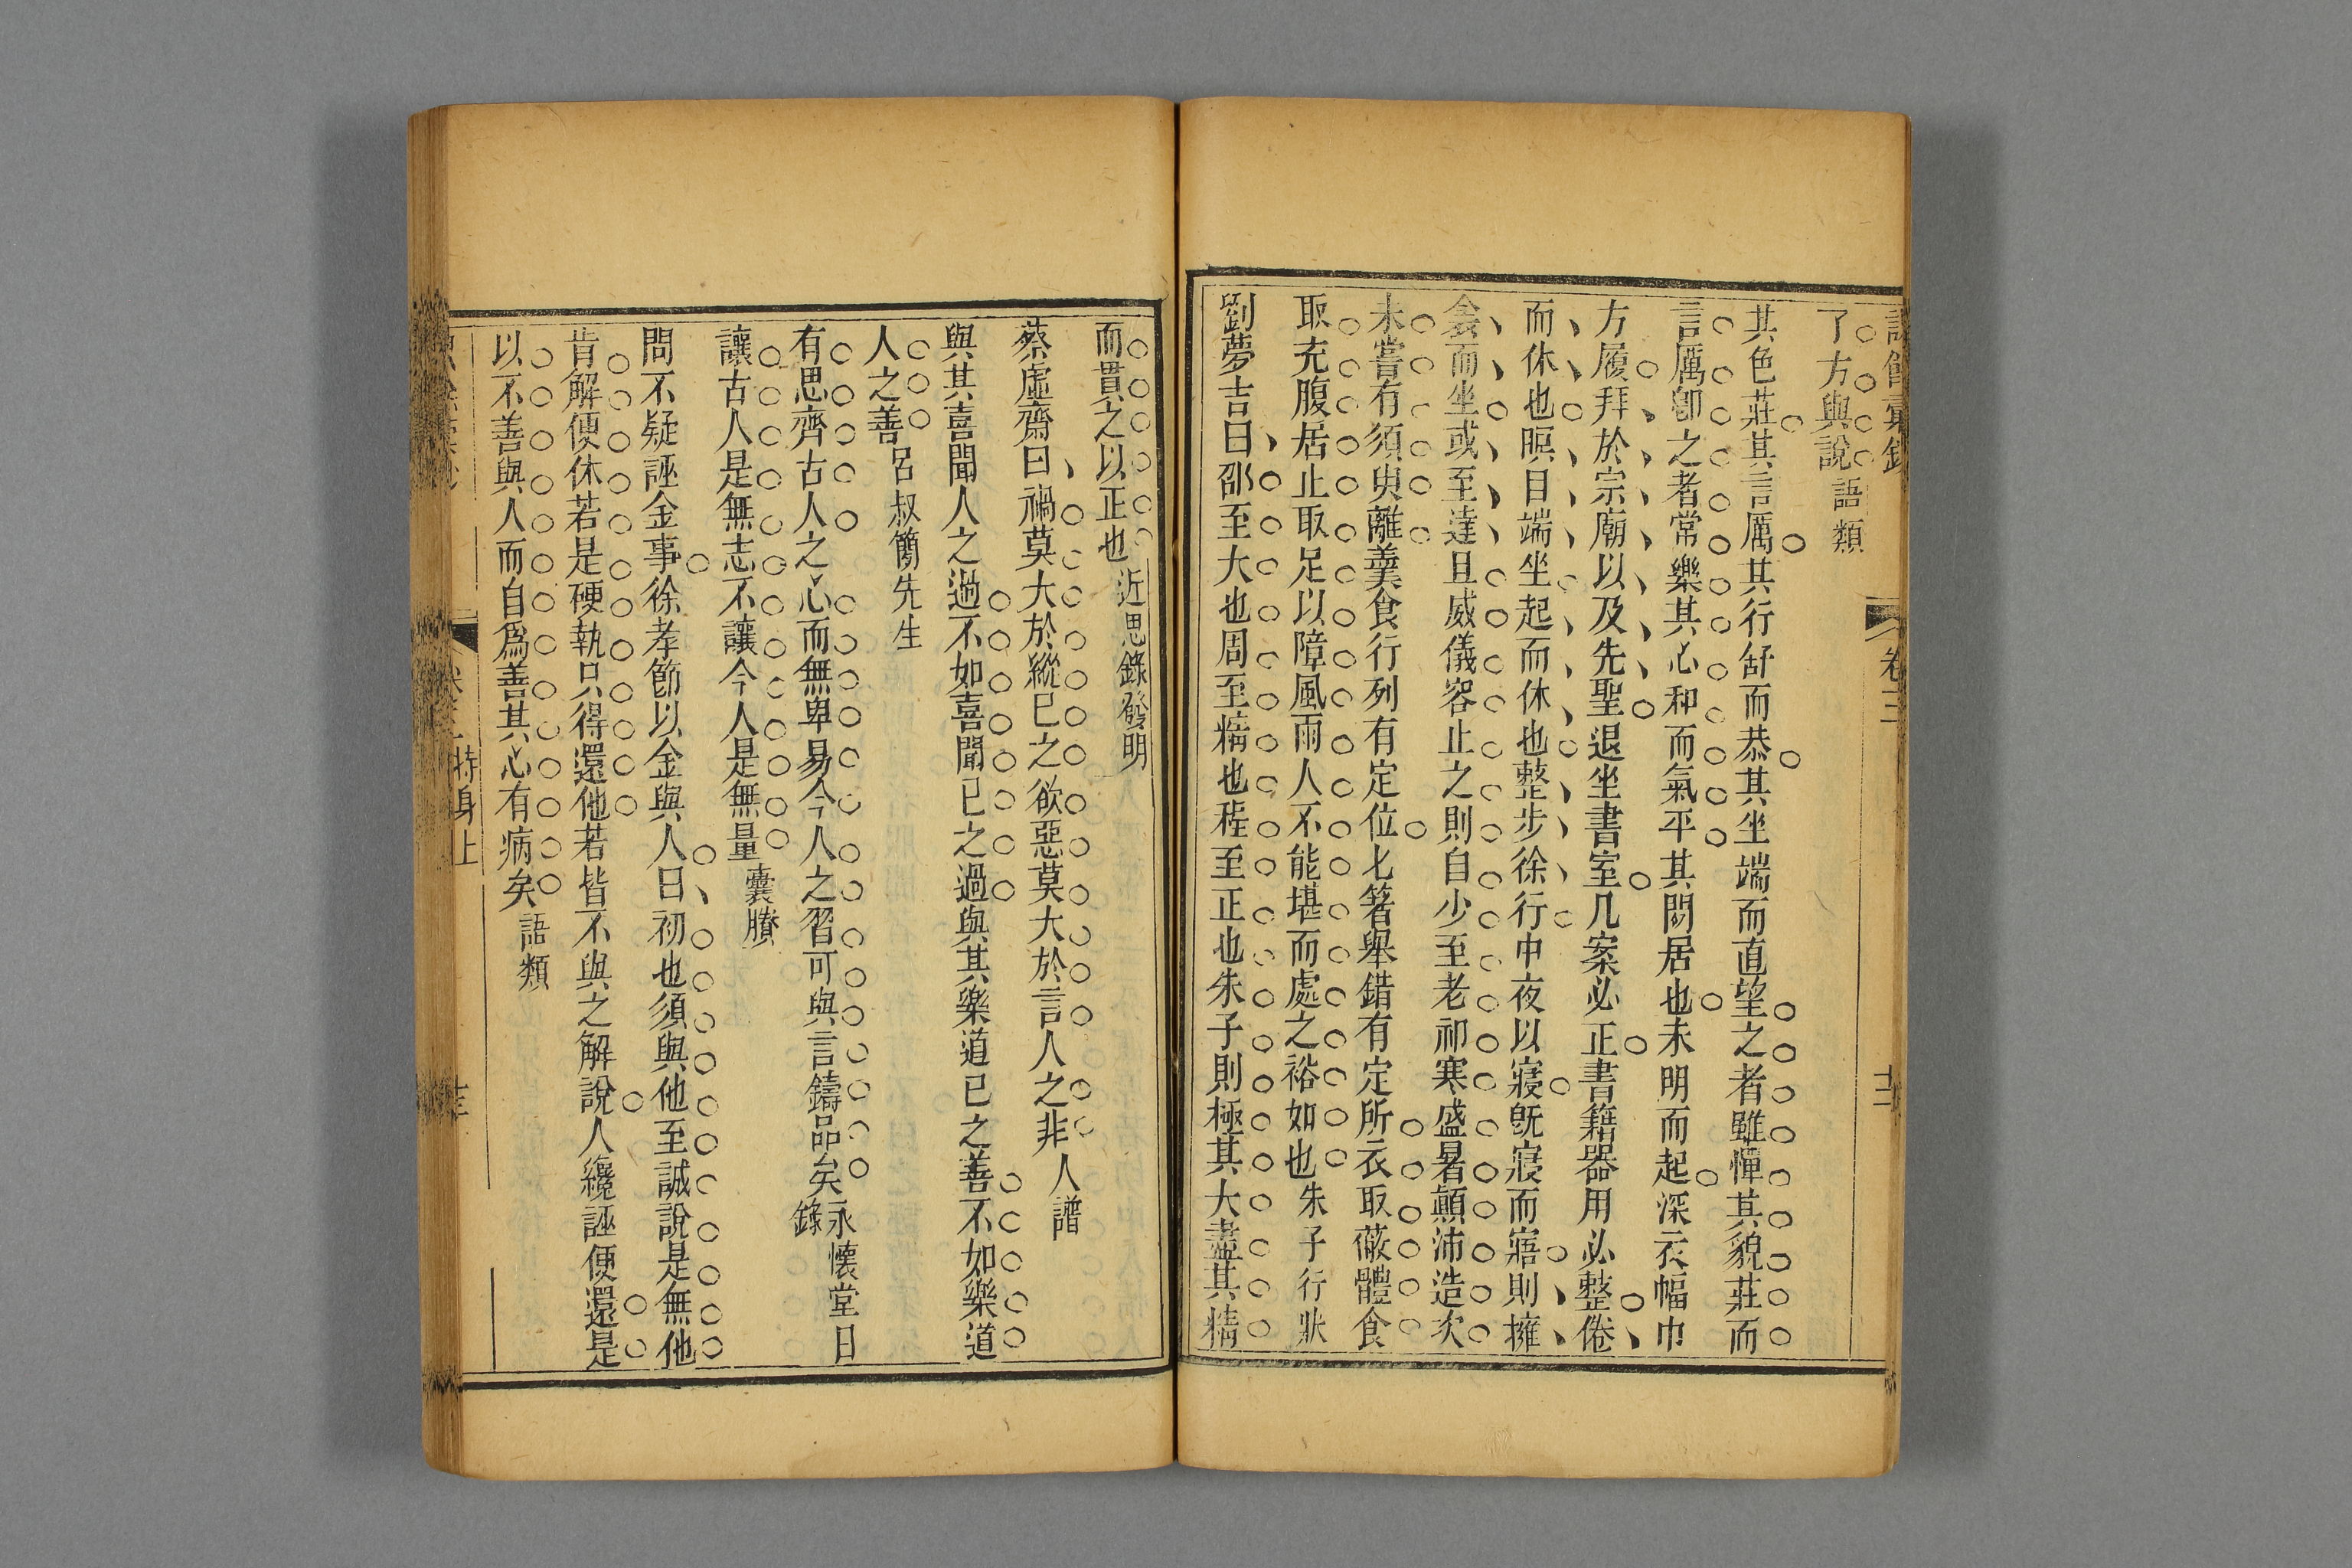 卷三
了方與說語類
其色莊其言厲其行舒而恭其坐端而直望之者雖憚其貌莊而
言厲卽之者常樂其心和而氣平其閒居也未明而起深衣幅巾
方履拜於宗廟以及先聖退坐書室几案必正書籍器用必整倦
而休也瞑目端坐起而休也整步徐行中夜以寢旣寢而寤則擁
衾而坐或至達旦威儀容止之則自少至老祁寒盛暑顛沛造次
未嘗有須臾離羹食行列有定位匕箸舉錯有定所衣取蔽體食
取充腹居止取足以障風雨人不能堪而處之裕如也朱子行狀
劉夢吉曰邵至大也周至精也程至正也朱子則極其大盡其精
而貫之以正也近思錄發明
蔡虛齋曰禍莫大於縱已之欲惡莫大於言人之非人譜
與其喜聞人之過不如喜聞已之過與其樂道已之善不如樂道
人之善呂叔簡先生
有思齊古人之心而無卑易今人之習可與言鑄品矣永懷堂日錄
讓古人是無志不讓今人是無量囊賸
問不疑誣金事徐孝節以金與人曰初也須與他至誠說是無他
肯解便休若是硬執只得還他若皆不與之解說人纔誣便還是
以不善與人而自爲善其心有病矣語類
持身上